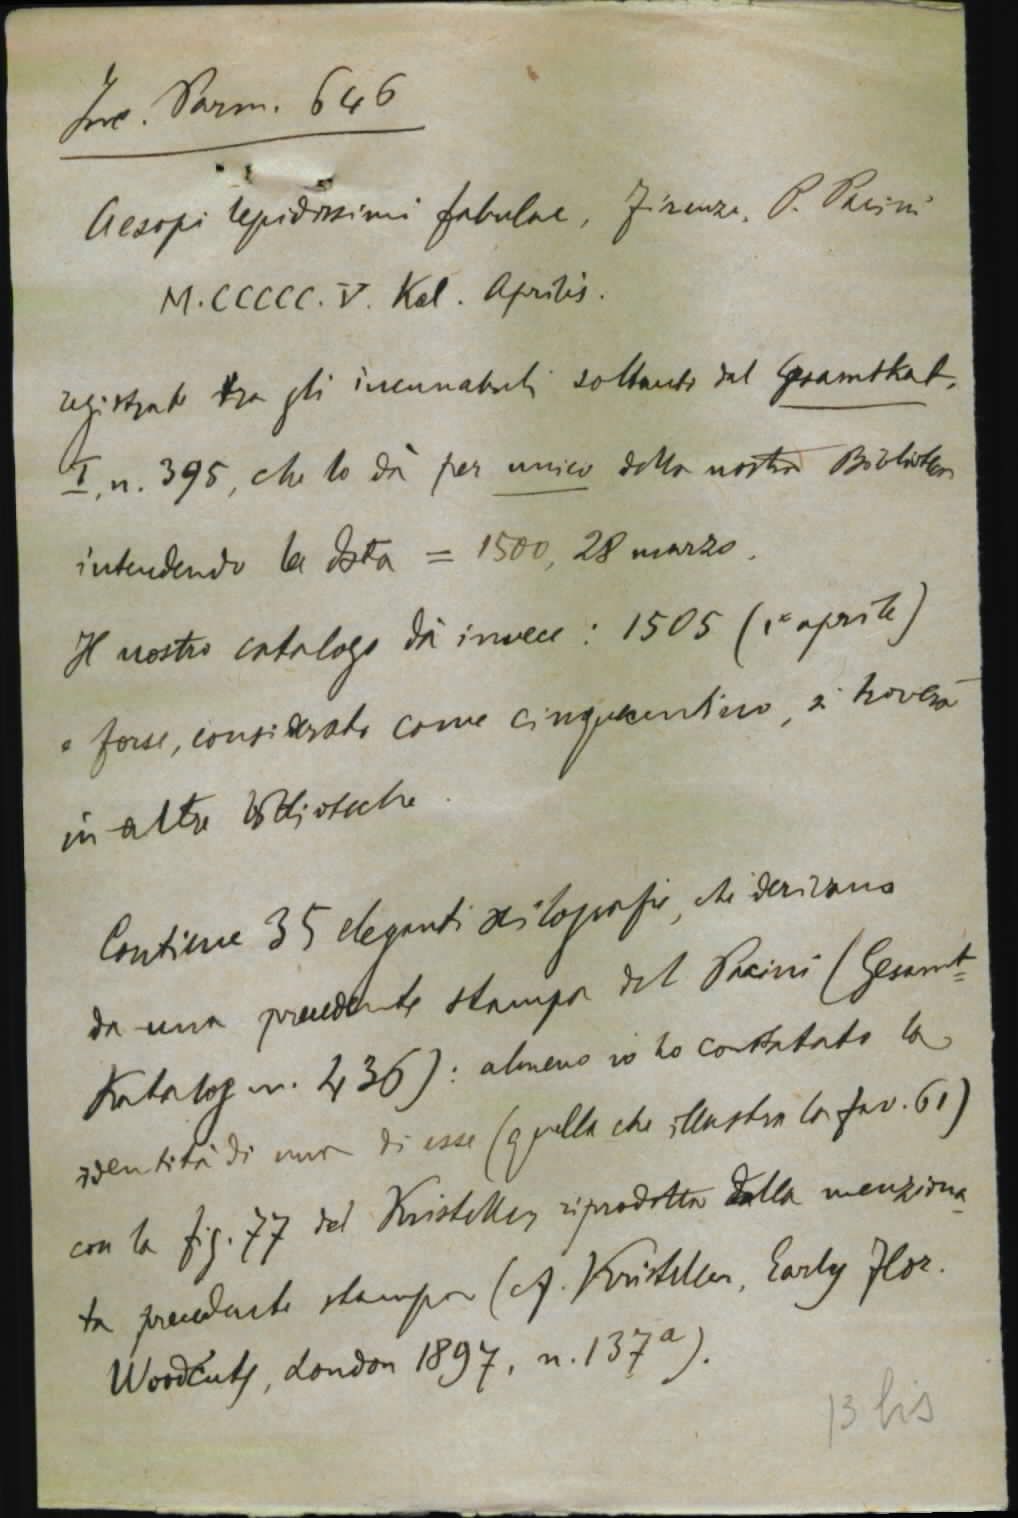 Inc. Parm. 646
Aesopi lepidissimi fabulae, Firenze, P. Pacini
M.CCCCC.V. Kal. Aprilis.
registrato tra gli incunabuli soltanto dal Gesamtkat.
I, n. 395, che lo dà per unico della nostra Biblioteca
intendendo la data = 1500, 28 marzo.
Il nostro catalogo dà invece: 1505 (1° aprile)
e forse, considerato come cinquecentino, si troverà
in altre biblioteche.
Contiene 35 eleganti xilografie, che derivano
da una precedente stampa del Pacini (Gesamt=
Katalog n. 436): almeno io ho constatato la
identità di una di esse (quella che illustra la fav. 61)
con la fig. 77 del Kristeller, riprodotta dalla menziona-
ta precedente stampa (cf. Kristeller, Early Flor.
Woodcuts, London 1897, n. 137a).
13 bis